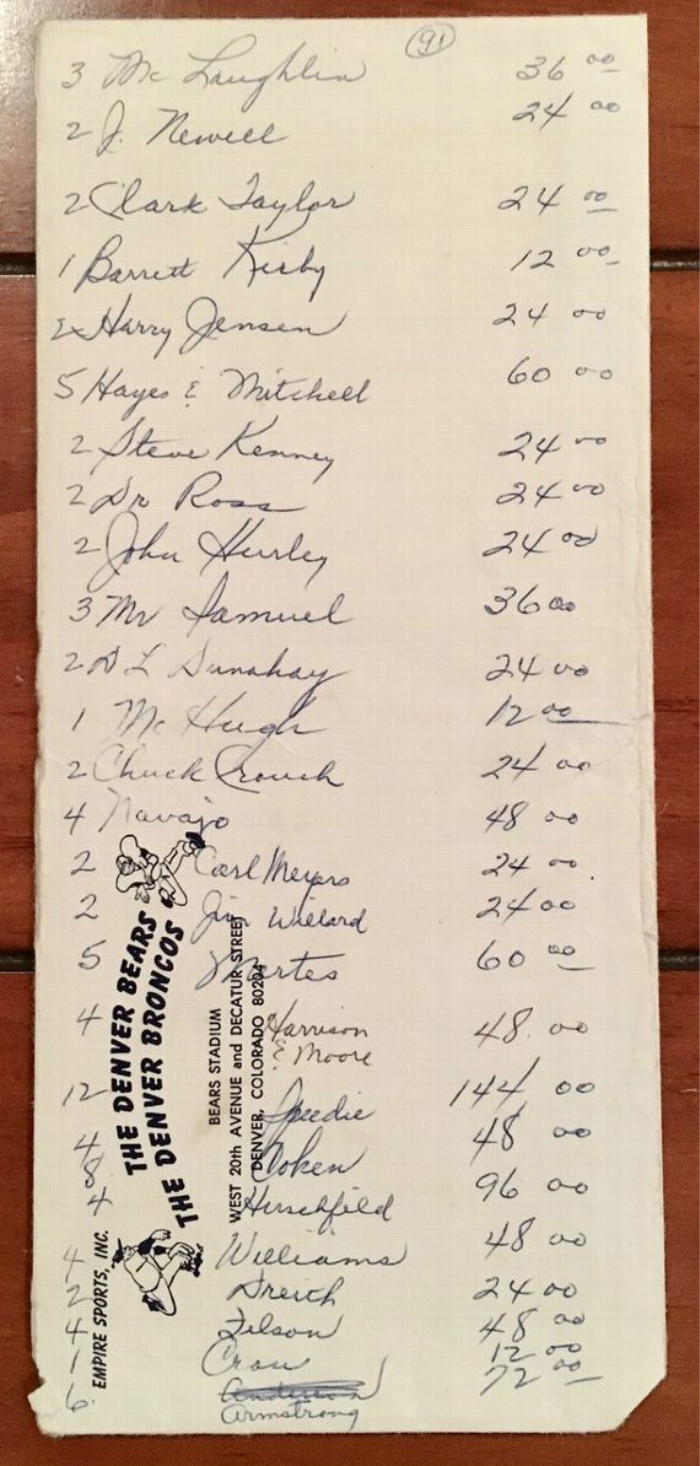 91
3 Mc Laughlin 36 00
2 J. Newell 24 00
2 Clark Taylor 24 00
1 Barrett Kirby 12 00
2 Harry Jensen 24 00
5 Hayes & Mitchell 60 00
2 Steve Kenney 24 00
2 Dr Ross 24 00
2 John Hurley 24 00
3 Mr Samuel 36 00
2 D L Dunahay 24 00
1 Mc Hugh 12 00
2 Chuck Crouch 24 00
4 Navajo 48 00
2 Carl Meyers 24 00
2 Jim Willard 24 00
5 Martes 60 00
4 Harrison 48 00
& Moore
12 Speedie 144 00
4 48 00
8 Hirschfeld 96 00
4
4 Williams 48 00
2 Dreith 24 00
4 Filson 48 00
1 12 00
6 Anderson 72 00
Armstrong
THE DENVER BEARS
THE DENVER BRONCOS
EMPIRE SPORTS, INC.
BEARS STADIUM
WEST 20th AVENUE and DECATUR STREET
DENVER, COLORADO 80204